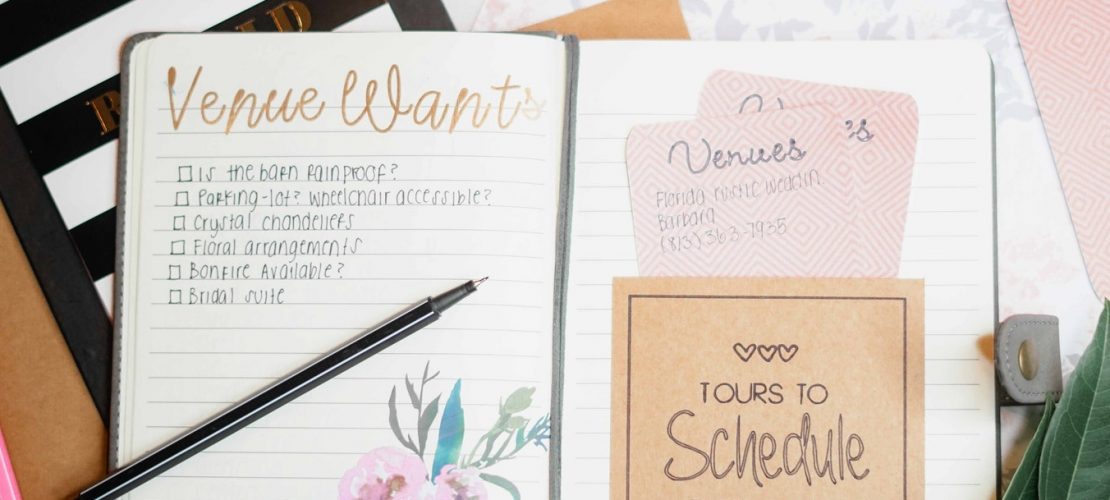 Venue Wants
Is the barn rainproof?
Parking-lot? wheelchair accessible?
Crystal chandeliers
Floral arrangements
Bonfire Available?
Bridal suite
Venues 's
Florida rustic
Barbara
(813) 363-7935
TOURS TO
Schedule